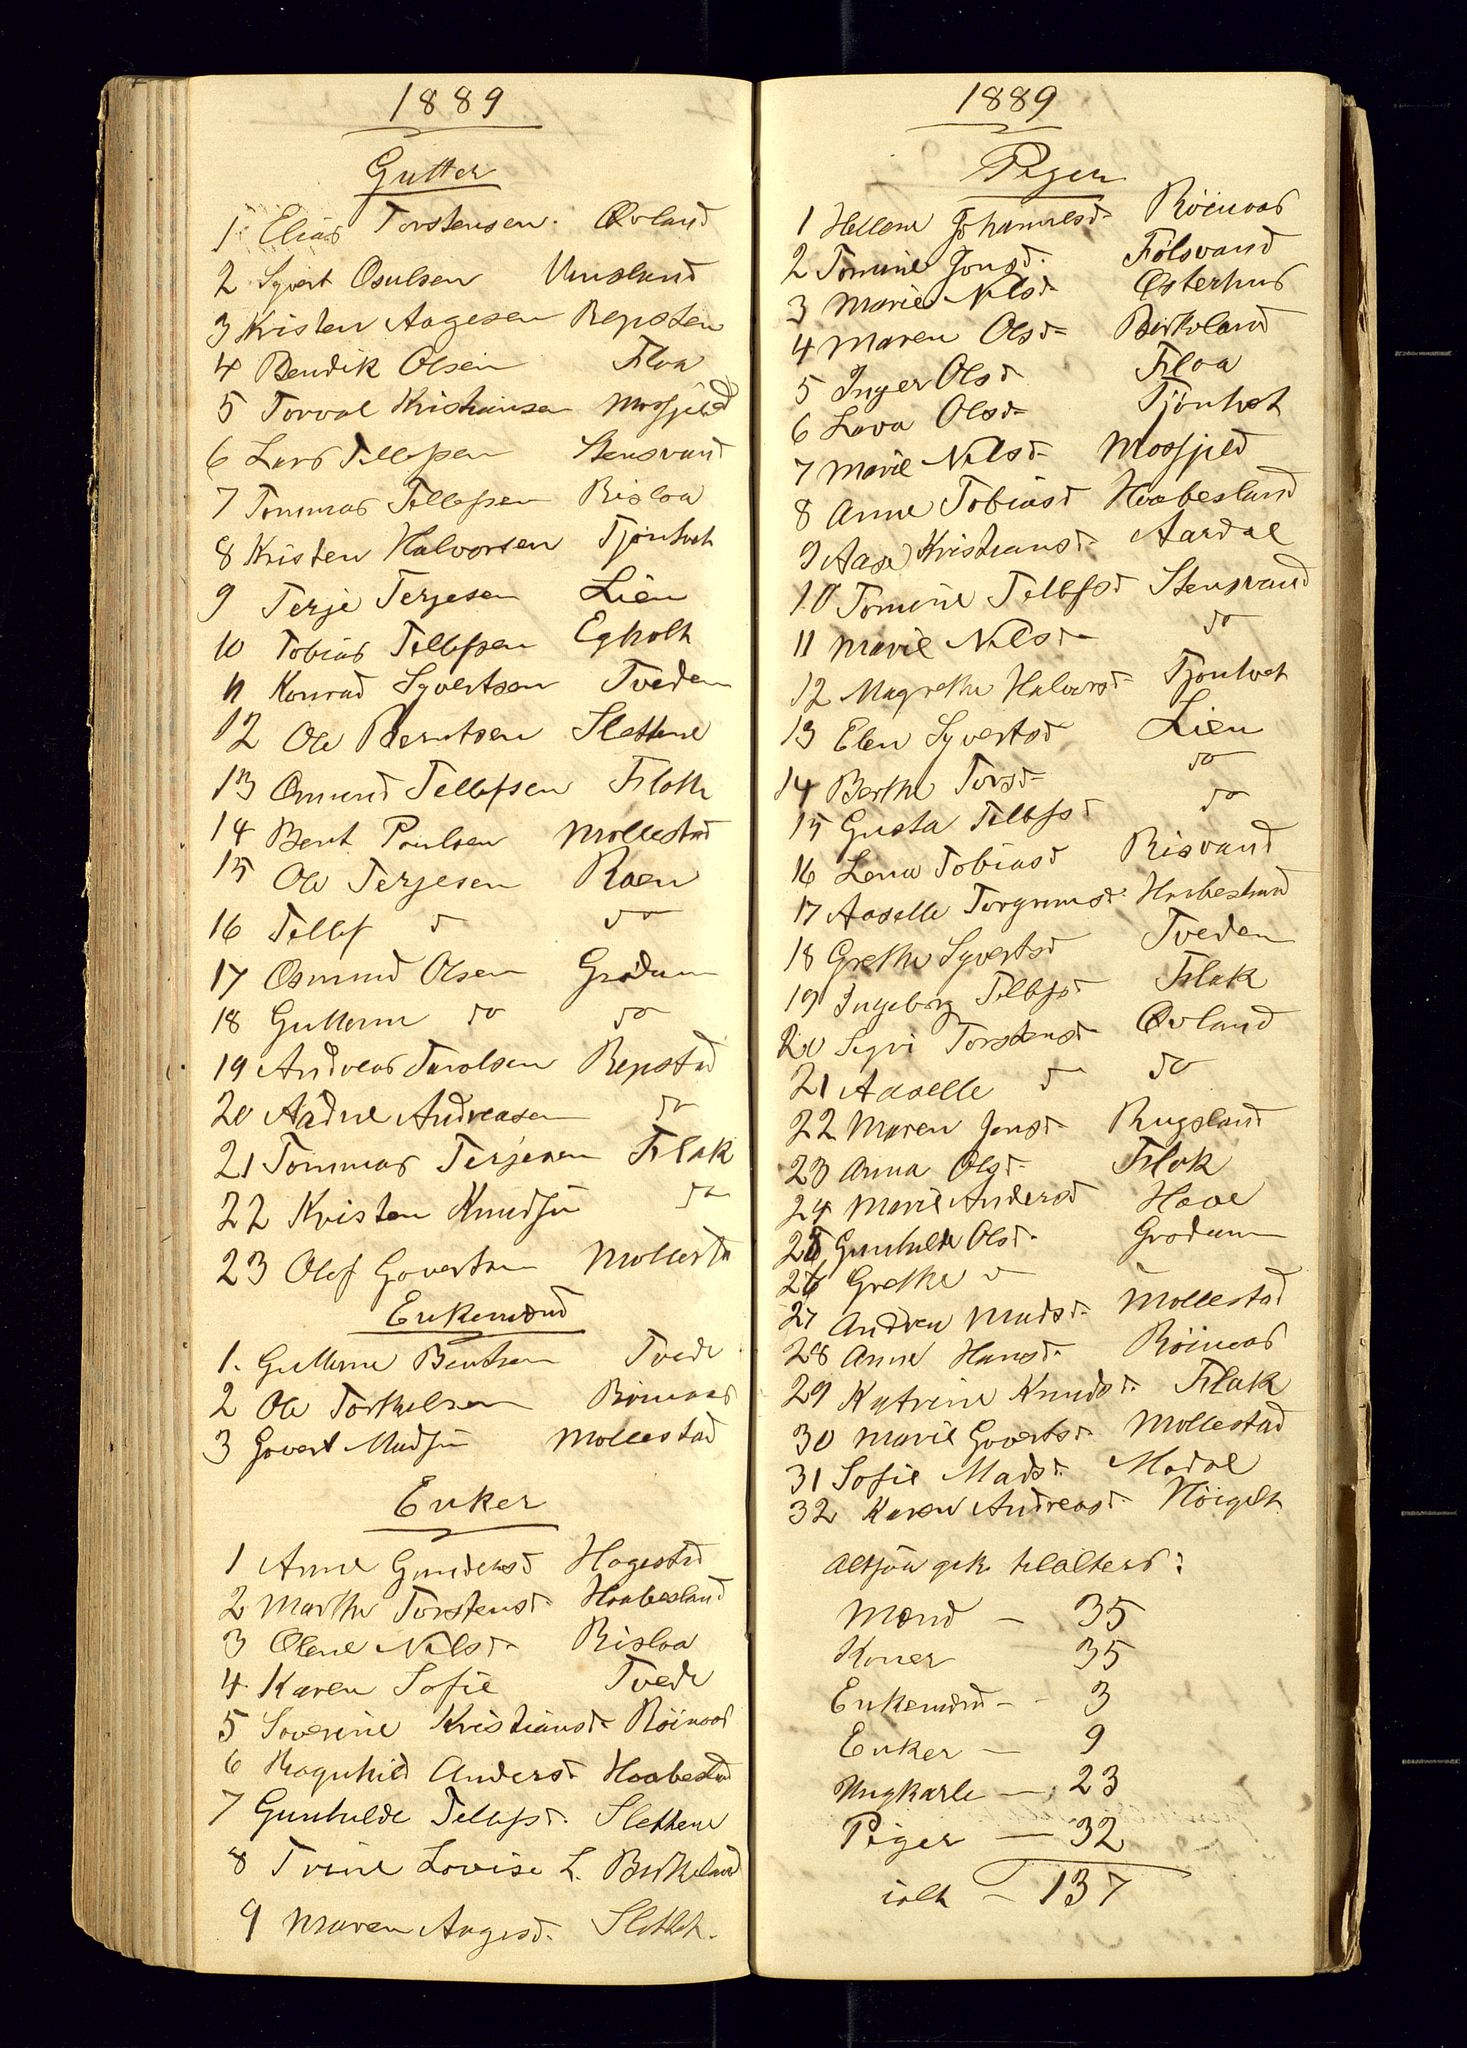 1889
Gutter
1 Elias Torstensen. Øvland
2 Syvert Osulsen Unusland
3 Kristen Aagesen Repsten
4 Bendik Olsen Floa
5 Torval Kristiansen Mosfjeld
6 Lars Tellefsen Stensvand
7 Tommas Tellefsen Risloa
8 Kristen Halvorsen Tjöntvet
9 Terje Terjesen Lien
10 Tobias Tellefsen Egholt
11 Konrad Syvertsen Tveden
12 Ole Berntsen Slettene
13 Omund Tellefsen Flath
14 Bent Poulsen Mollestad
15 Ole Terjesen Raen
16 Tellef d do
17 Osmund Olsen Grödum
18 Guttorm do do
19 Andreas Tarolsen Repstad
20 Aadne Andreasen do
21 Tommas Terjesen Flak
22 Kristen Knudsen do
23 Olef Govertsen Mollesta
Enkemænd
1. Guttorm Bentsen Tvede
2 Ole Torkelsen Röinaas
3 Govert Madsen Mollestad
Enker
1 Anne Gunderd Hagestad
2 Marthe Torstensd. Haabesland
3 Olene Nilsd. Risloa
4. Karen Sofie Tvede
5 Severine Kristiansd. Röinaas
6 Ragnhild Andersd. Haabeslad
7 Gunhilde Tellefsd. Slettene
8 Trine Lovise L. Birkeland
9 Maren Aagesd. Slettet.
1889
Piger
1 Hellene Johannesd. Röinaas
2 Tomine Jonsd. Fölsvand
3 Marie Nilsd. Østerhus
4 Maren Olsd. Birkeland
5 Inger Olsd Floa
6 Lava Olsd. Tjöntvet
7 Marie Nilsd. Mosfjeld
8 Anne Tobiasd Haabesland
9 Aase Kristiansd. Aardal
10 Tomine Tellefsd Stensvand
11 Marie Nilsd. do
12 Magrethe Halvorsd. Tjöntvet
13 Elen Syvertsd Lien
14 Berthe Torsd. do
15 Gusta Tellefsd do
16 Lena Tobiasd Risvand
17 Aaselle Torgrimsd. Haabesland
18 Grethe Syvertsd Tveden
19 Ingeborg Tellefsd Flak
20 Sigri Torstensd. Øvland
21 Aaselle d do
22 Maren Jensd. Rugsland
23 Anna Olsd. Flak
24 Marie Andersd Have
25 Gunhilde Olsd. Grödum
26 Grethe d "
27 Andrea Madsd. Mollestad
28 Anne Hansd. Röinaas
29 Katrine Knudsd. Flak
30 Marie Govertsd. Mollestad
31 Sofie Madsd. Modal
32 Karen Andreasd. Höigilt
Altsaa gik tilalters:
Mænd – 35
Koner 35
Enkemænd – 3
Enker – 9
Ungkarle – 23
Piger – 32
ialt – 137